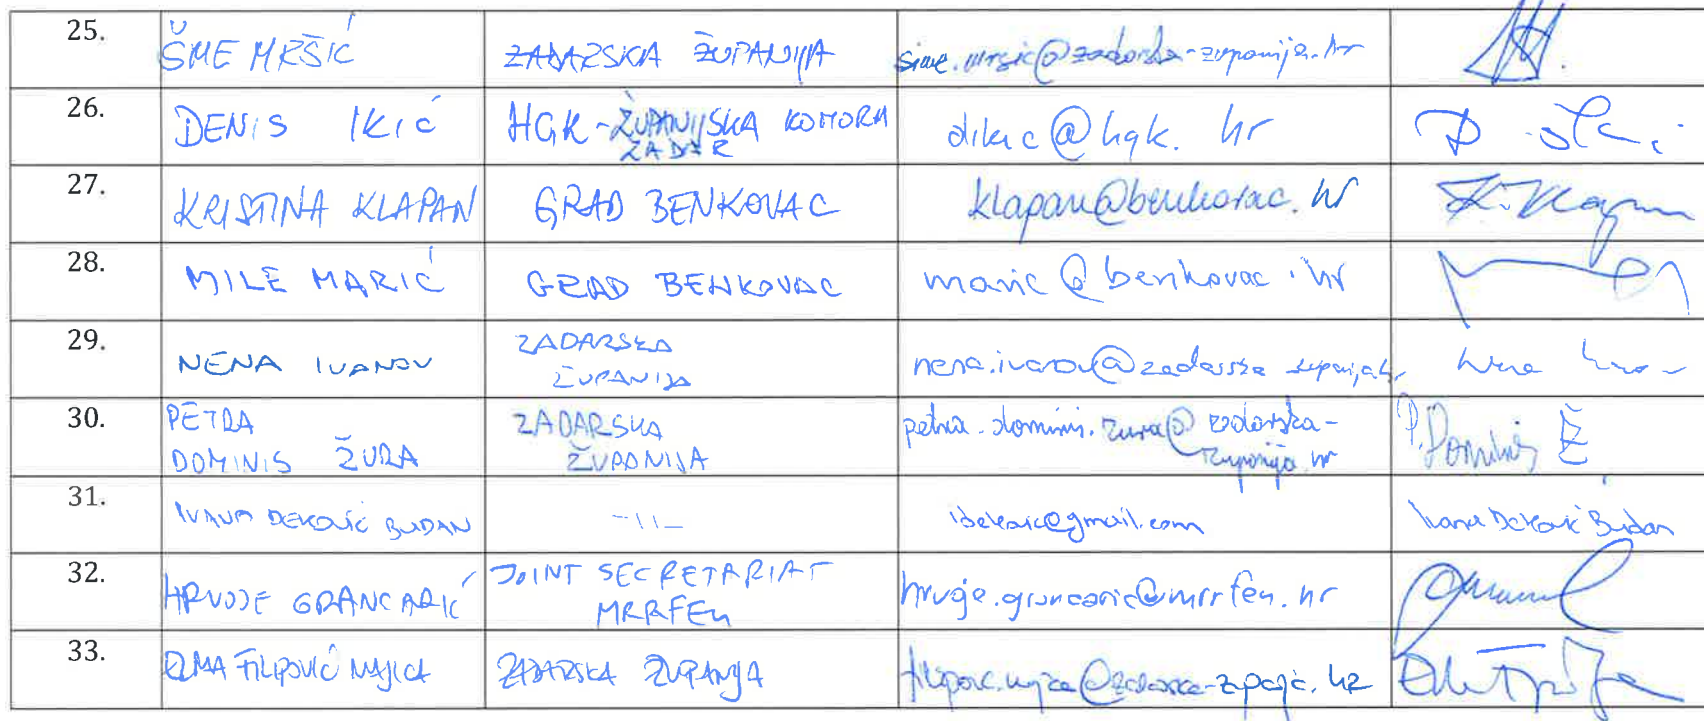 25. ŠIME MRŠIĆ ZADARSKA ŽUPANIJA sime.mrsic@zadarska-zupanija.hr
26. DENIS IKIĆ HGK-ŽUPANIJSKA KOMORA ZADAR dikic@hgk.hr
27. KRISTINA KLAPAN GRAD BENKOVAC klapan@benkovac.hr K. Klapan
28. MILE MARIĆ GRAD BENKOVAC maric@benkovac.hr
29. NENA IVANOV ZADARSKA ŽUPANIJA nena.ivanov@zadarska-zupanija.hr
30. PETRA DOMINIS ŽURA ZADARSKA ŽUPANIJA petra.dominis.zura@zadarska-zupanija.hr P. Dominis Ž
31. IVANA DEKOVIĆ BUDAN -11- idekovic@gmail.com Ivana Deković Budan
32. HRVOJE GRANCARIĆ JOINT SECRETARIAT MRRFEU hrvoje.grancaric@mrrfeu.hr
33. FILIPOVIĆ ZADARSKA ŽUPANIJA